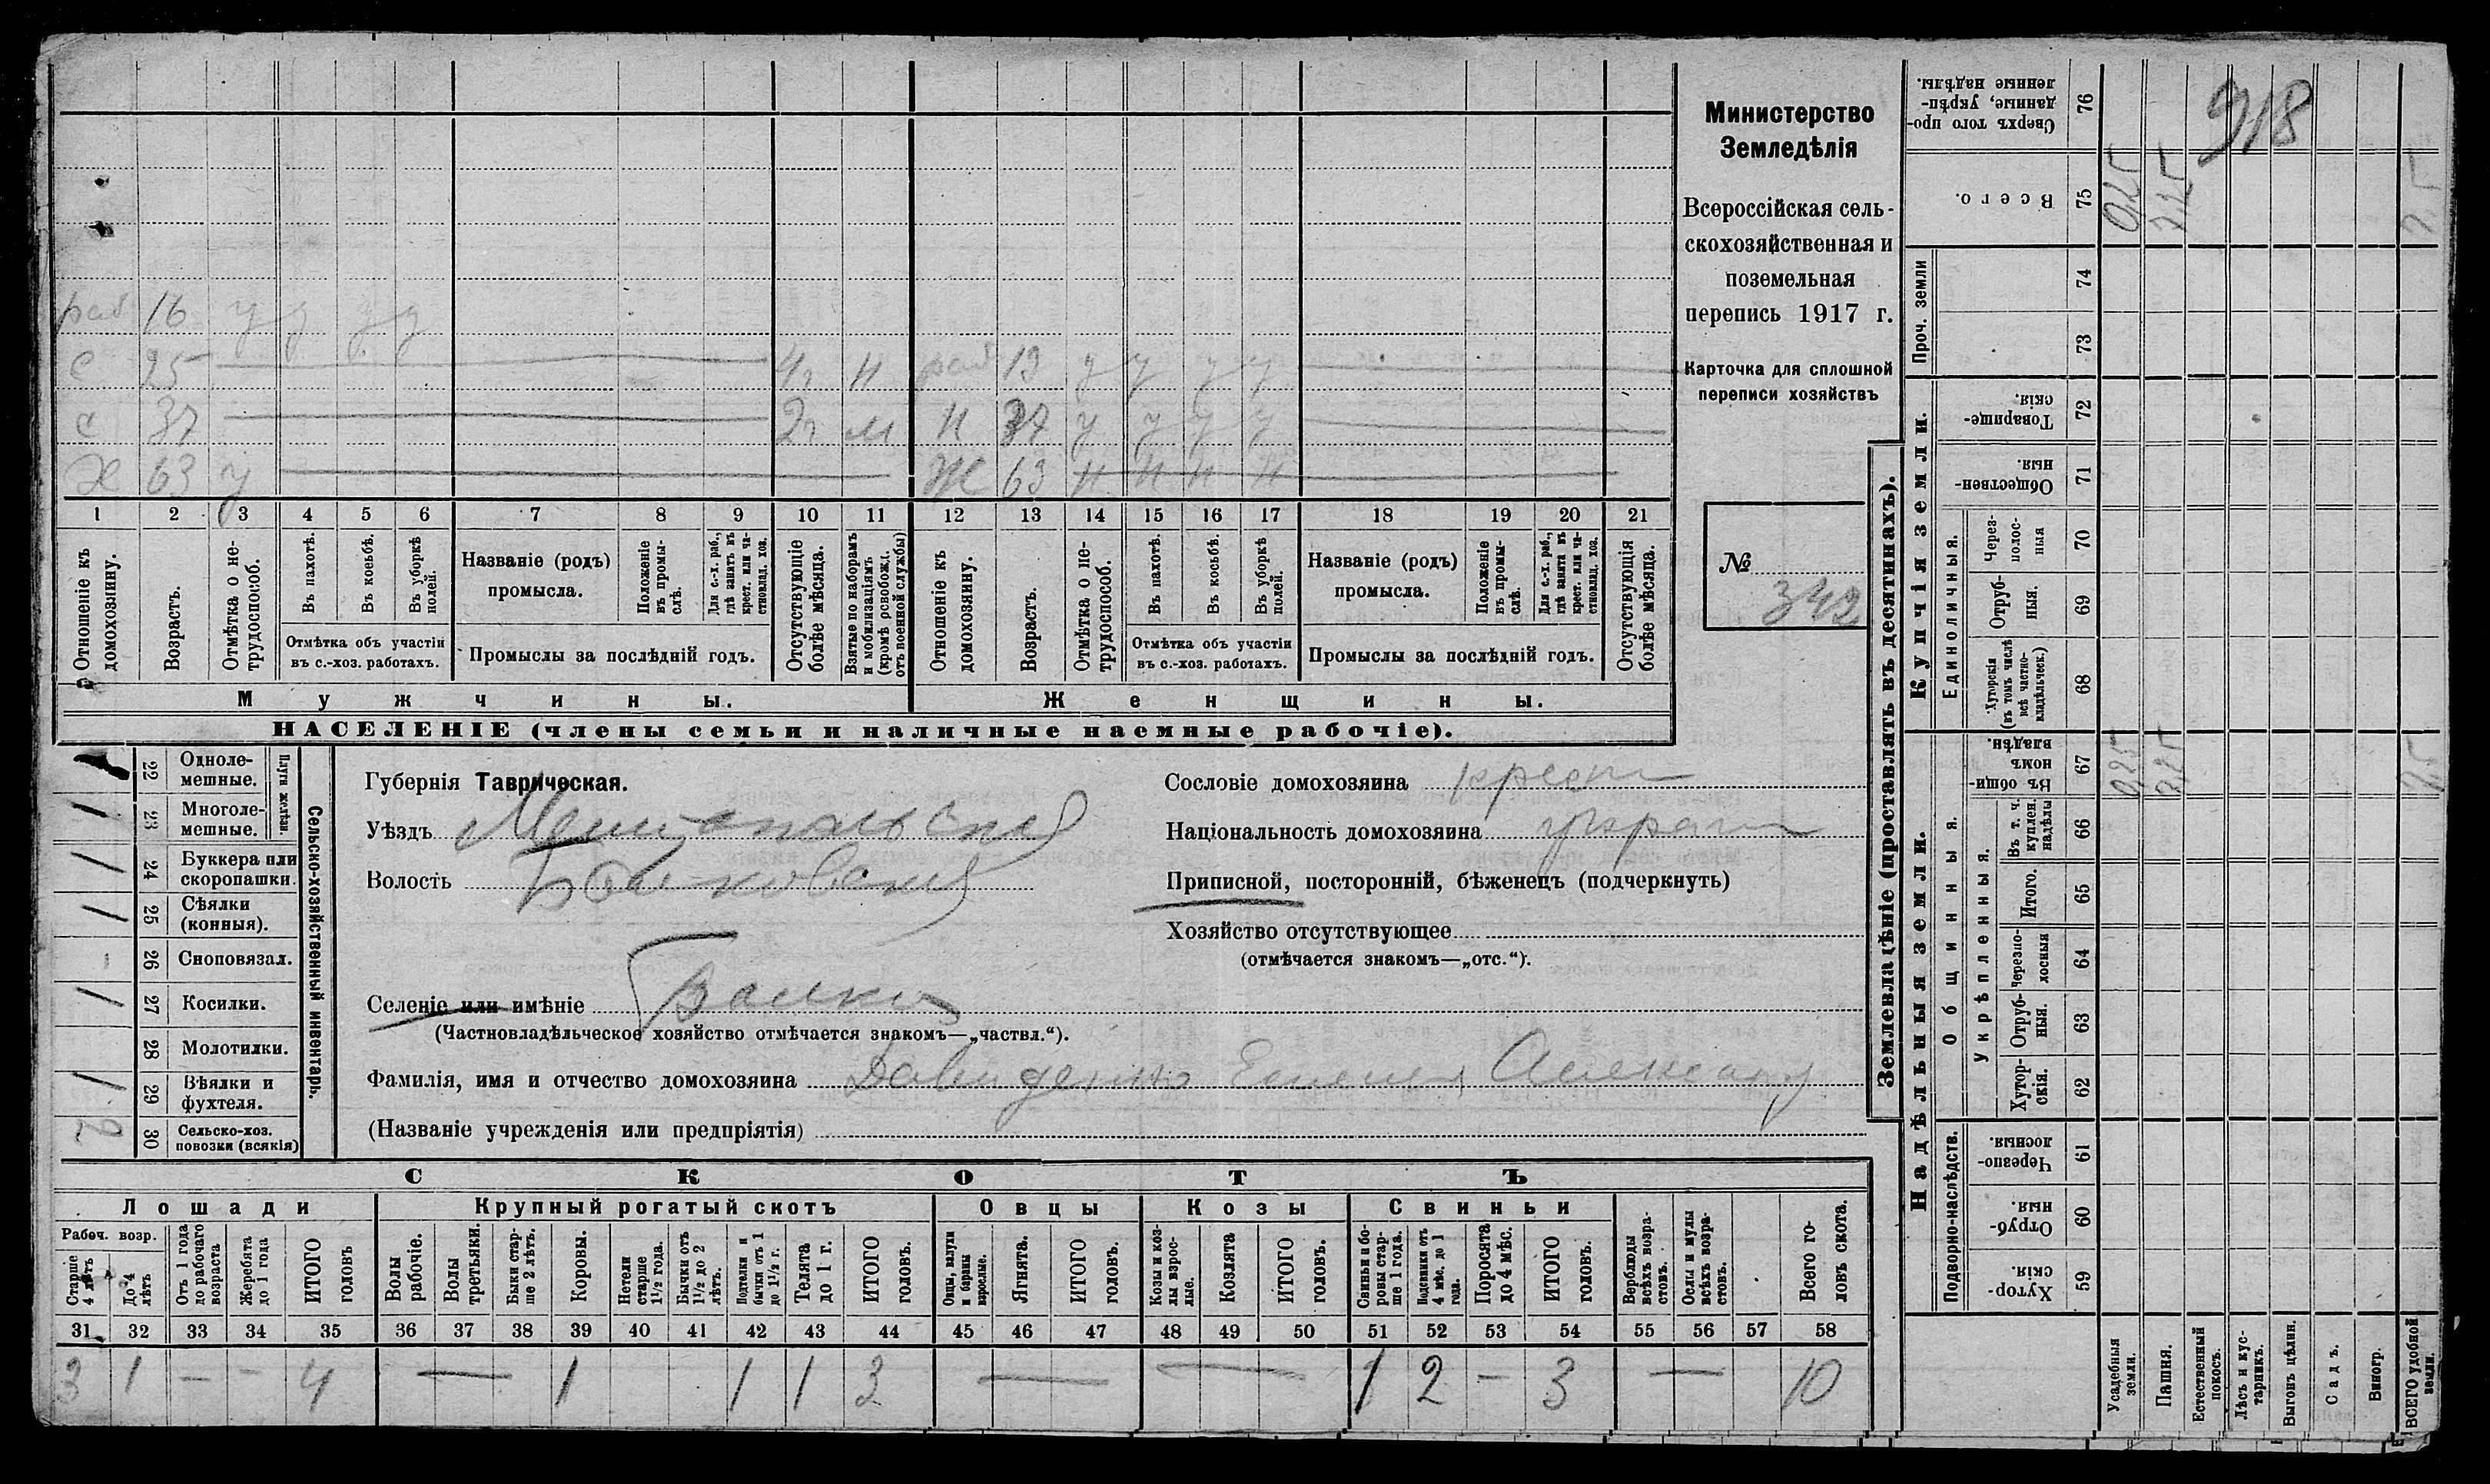 Министерство
Земледѣлія
Всероссійская сель-
скохозяйственная и
поземельная
перепись 1917 г.
Карточка для сплошной
переписи хозяйствъ
№
342
918
раб 16 у у у у
с 25 4г н раб 19 у у у у
с 37 2г м н 37 у у у у
Х 63 у Ж 63 н н н н
1 2 3 4 5 6 7 8 9 10 11 12 13 14 15 16 17 18 19 20 21
Отношеніе къ домохозяину.
Возрастъ.
Отмѣтка о не-трудоспособ.
Въ пахотѣ.
Въ косьбѣ.
Въ уборкѣ полей.
Отмѣтка объ участіи
въ с.-хоз. работахъ.
Названіе (родъ)
промысла.
Положеніе въ промы-слѣ.
Для с.-х. раб., гдѣ занятъ въ крест. или ча-стновлад. хоз.
Промыслы за послѣдній годъ.
Отсутствующіе болѣе мѣсяца.
Взятые по наборамъ и мобилизаціямъ (кромѣ освобожд. отъ военной службы)
Отношеніе къ домохозяину.
Возрастъ.
Отмѣтка о не-трудоспособ.
Въ пахотѣ.
Въ косьбѣ.
Въ уборкѣ полей.
Отмѣтка объ участіи
въ с.-хоз. работахъ.
Названіе (родъ)
промысла.
Положеніе въ промы-слѣ.
Для с.-х. раб., гдѣ занята въ крест. или ча-стновлад. хоз.
Промыслы за послѣдній годъ.
Отсутствующія болѣе мѣсяца.
Мужчины.
Женщины.
НАСЕЛЕНІЕ (члены семьи и наличные наемные рабочіе).
Сельско-хозяйственный инвентарь.
Плуги желѣзн.
22 Одноле-мешные.
1 23 Многоле-мешные.
1 24 Буккера или скоропашки.
1 25 Сѣялки (конныя).
26 Сноповязал.
1 27 Косилки.
28 Молотилки.
1 29 Вѣялки и фухтеля.
2 30 Сельско-хоз. повозки (всякія)
Губернія Таврическая.
Уѣздъ Мелитопольскій
Волость Балковская
Селеніе или имѣніе Балки
(Частновладѣльческое хозяйство отмѣчается знакомъ—„частвл.“).
Фамилія, имя и отчество домохозяина Давиденко Емельян Александр
(Названіе учрежденія или предпріятія)
Сословіе домохозяина крест
Національность домохозяина украин
Приписной, посторонній, бѣженецъ (подчеркнуть)
Хозяйство отсутствующее
(отмѣчается знакомъ—„отс.“).
СКОТЪ
Лошади
Крупный рогатый скотъ
Овцы
Козы
Свиньи
Рабоч. возр.
Старше 4 лѣтъ
До 4 лѣтъ
Отъ 1 года до рабочаго возраста
Жеребята до 1 года
ИТОГО головъ
Волы рабочіе.
Волы третьяки.
Быки стар-ше 2 лѣтъ.
Коровы.
Нетели старше 1½ года.
Бычки отъ 1½ до 2 лѣтъ.
Подтелки и бычки отъ 1 до 1½ г.
Телята до 1 г.
ИТОГО головъ.
Овцы, валухи и бараны взрослые.
Ягнята.
ИТОГО головъ.
Козы и коз-лы взрос-лые.
Козлята
ИТОГО головъ.
Свиньи и бо-ровы стар-ше 1 года.
Подсвинки отъ 4 мѣс. до 1 года.
Поросята до 4 мѣс.
ИТОГО головъ.
Верблюды всѣхъ возра-стовъ.
Ослы и мулы всѣхъ возра-стовъ.
Всего го-ловъ скота.
31 32 33 34 35 36 37 38 39 40 41 42 43 44 45 46 47 48 49 50 51 52 53 54 55 56 57 58
3 1 — — 4 — 1 1 1 3 — — 1 2 — 3 — 10
Землевладѣніе (проставлять въ десятинахъ).
Надѣльныя земли.
Купчія земли.
Проч. земли
Подворно-наслѣдств.
Общинныя.
Укрѣпленныя.
Единоличныя.
Сверхъ того про-данные, укрѣп-ленные надѣлы. 76
Всего. 75 0,25 2,25 2,5
74
73
Товарище-скія. 72
Обществен-ныя. 71
Через-полос-ныя 70
Отруб-ныя. 69
Хуторскія (въ томъ числѣ всѣ частно-владѣльческ.) 68
Въ общи-номъ владѣн. 67 0,25 2,25 2,5
Въ т. ч. куплен. надѣлы 66
Итого. 65
Черезпо-лосныя 64
Отруб-ныя. 63
Хутор-скія. 62
Черезпо-лосныя. 61
Отруб-ныя. 60
Хутор-скія. 59
Усадебныя земли.
Пашня.
Естественный покосъ.
Лѣсъ и кус-тарникъ.
Выгонъ цѣлин.
Садъ.
Виногр.
ВСЕГО удобной земли.